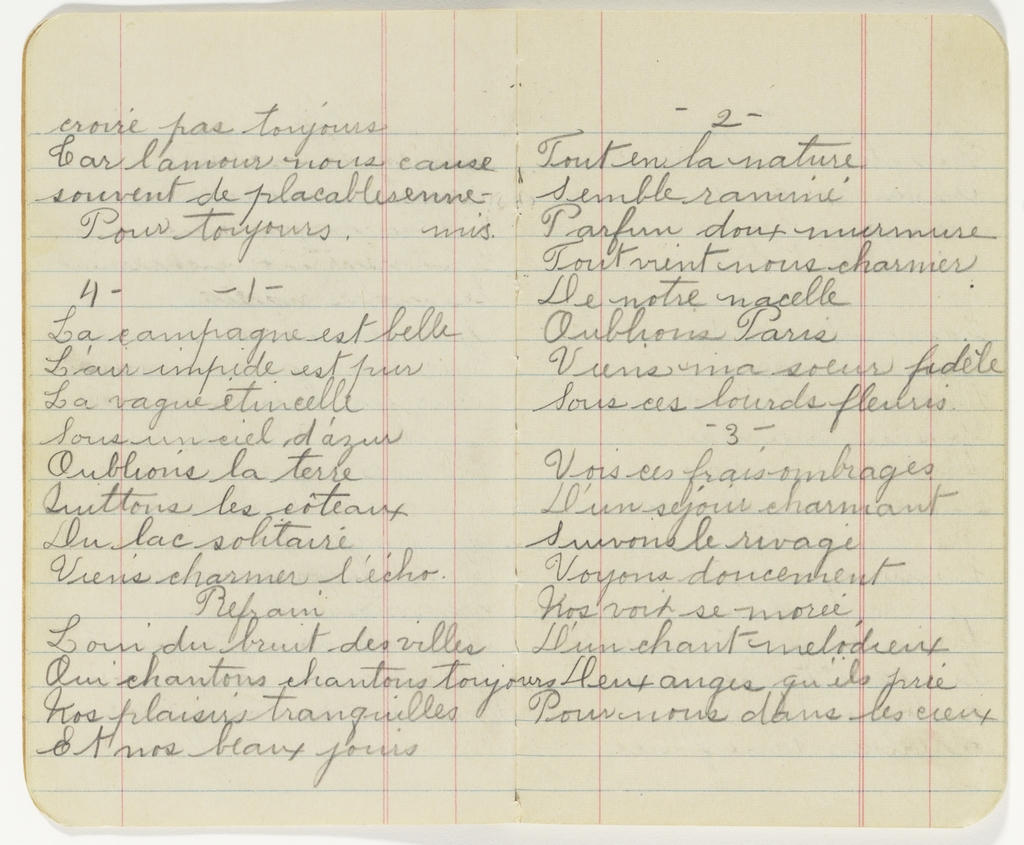 croiré pas toujours
Car l'amour nous cause
souvent de placables enne-
Pour toujours. mis.
4- -1-
La campagne est belle
L'air impide est pur
La vague étincelle
Sous un ciel d'azur
Oublions la terre
Quittons les côteaux
Du lac solitairé
Viens charmer l'écho.
Refrain
Loin du bruit des villes
Oui chantons chantons toujours
Nos plaisirs tranquilles
Et nos beaux jours
-2-
Tout en la nature
Semble ranimé
Parfun doux murmure
Tout vient nous charmer
De notre nacelle
Oublions Paris
Viens ma soeur fidèle
Sous ces lourds fleuris.
-3-
Vois ces frais ombrages
D'un séjour charmant
Suivons le rivage
Voyons doucement
Nos voit se morée
D'un chant melodieux
Deux anges qu'ils prie
Pour nous dans les cieux